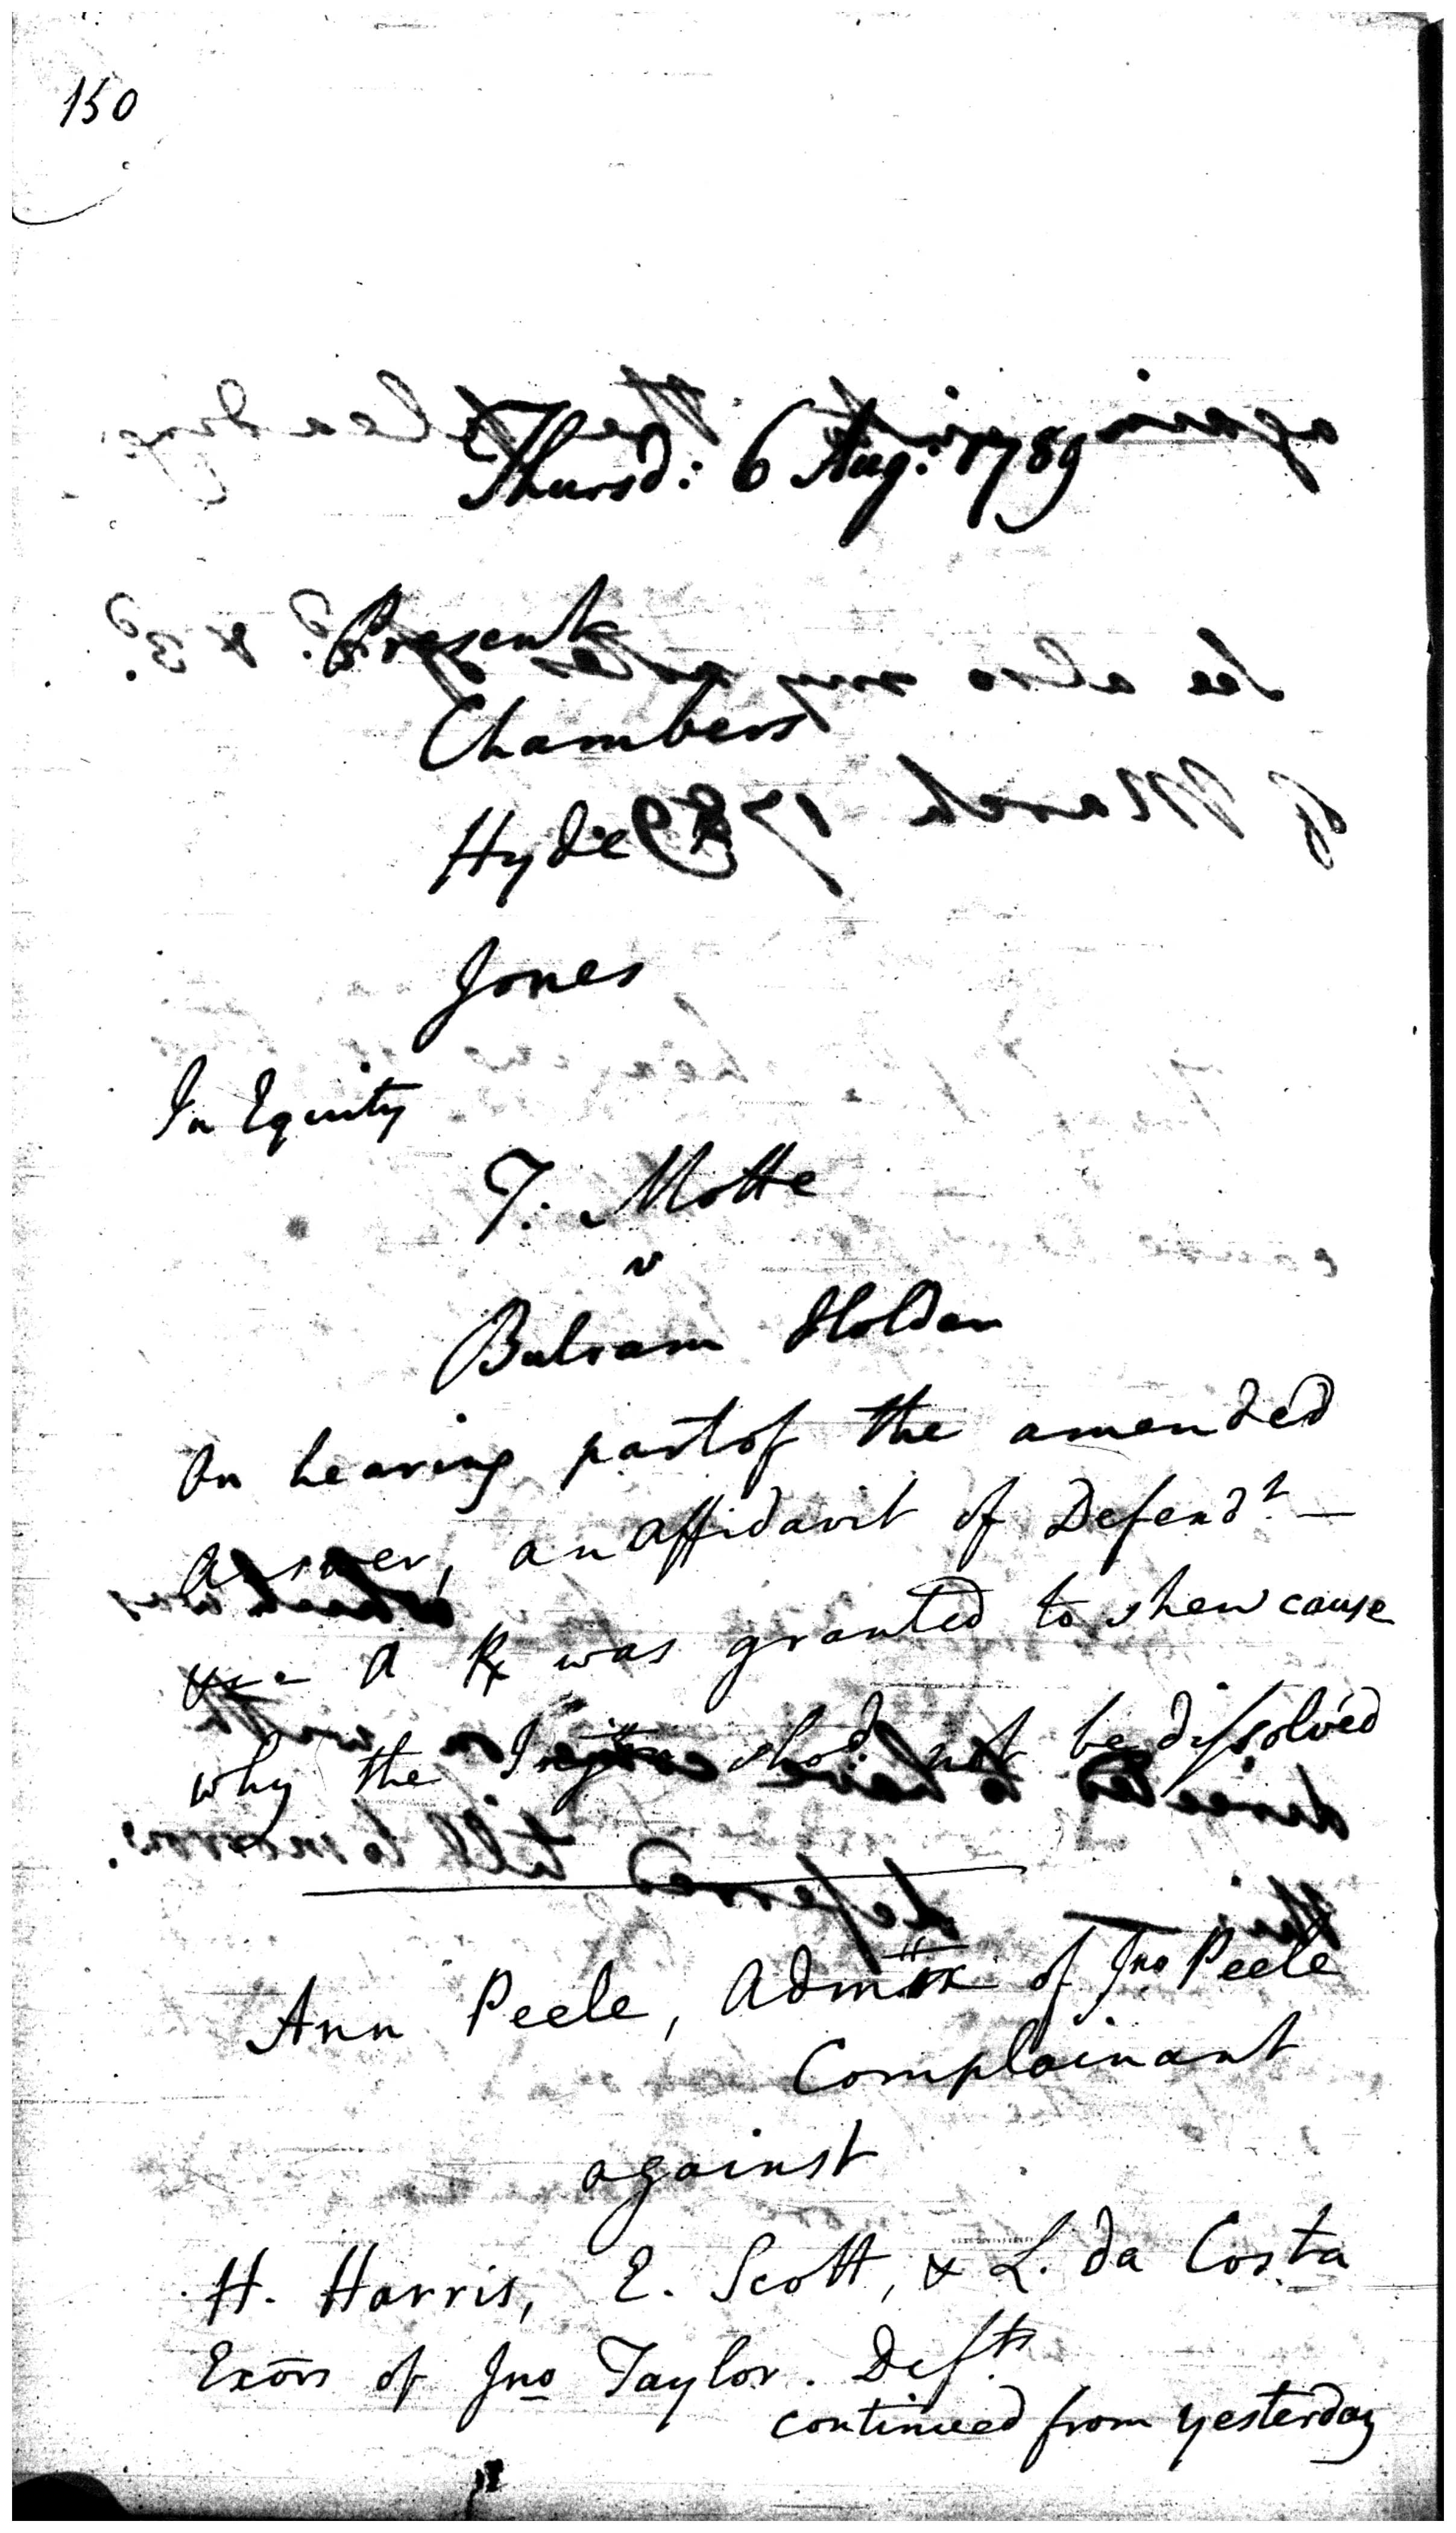 150
Thursd: 6 Aug: 1789
Present
Chambers
Hyde
Jones
In Equity
T. Motte
v
Bulram Holdar
On hearing part of the amended
Answer, an affidavit of Defendt —
A Rx was granted to shew cause
why the shod not be dissolved
Ann Peele, Admx of Jno Peele
Complainant
against
H. Harris, E. Scott, & L. da Costa
Exors of Jno Taylor. Defts
continued from yesterday